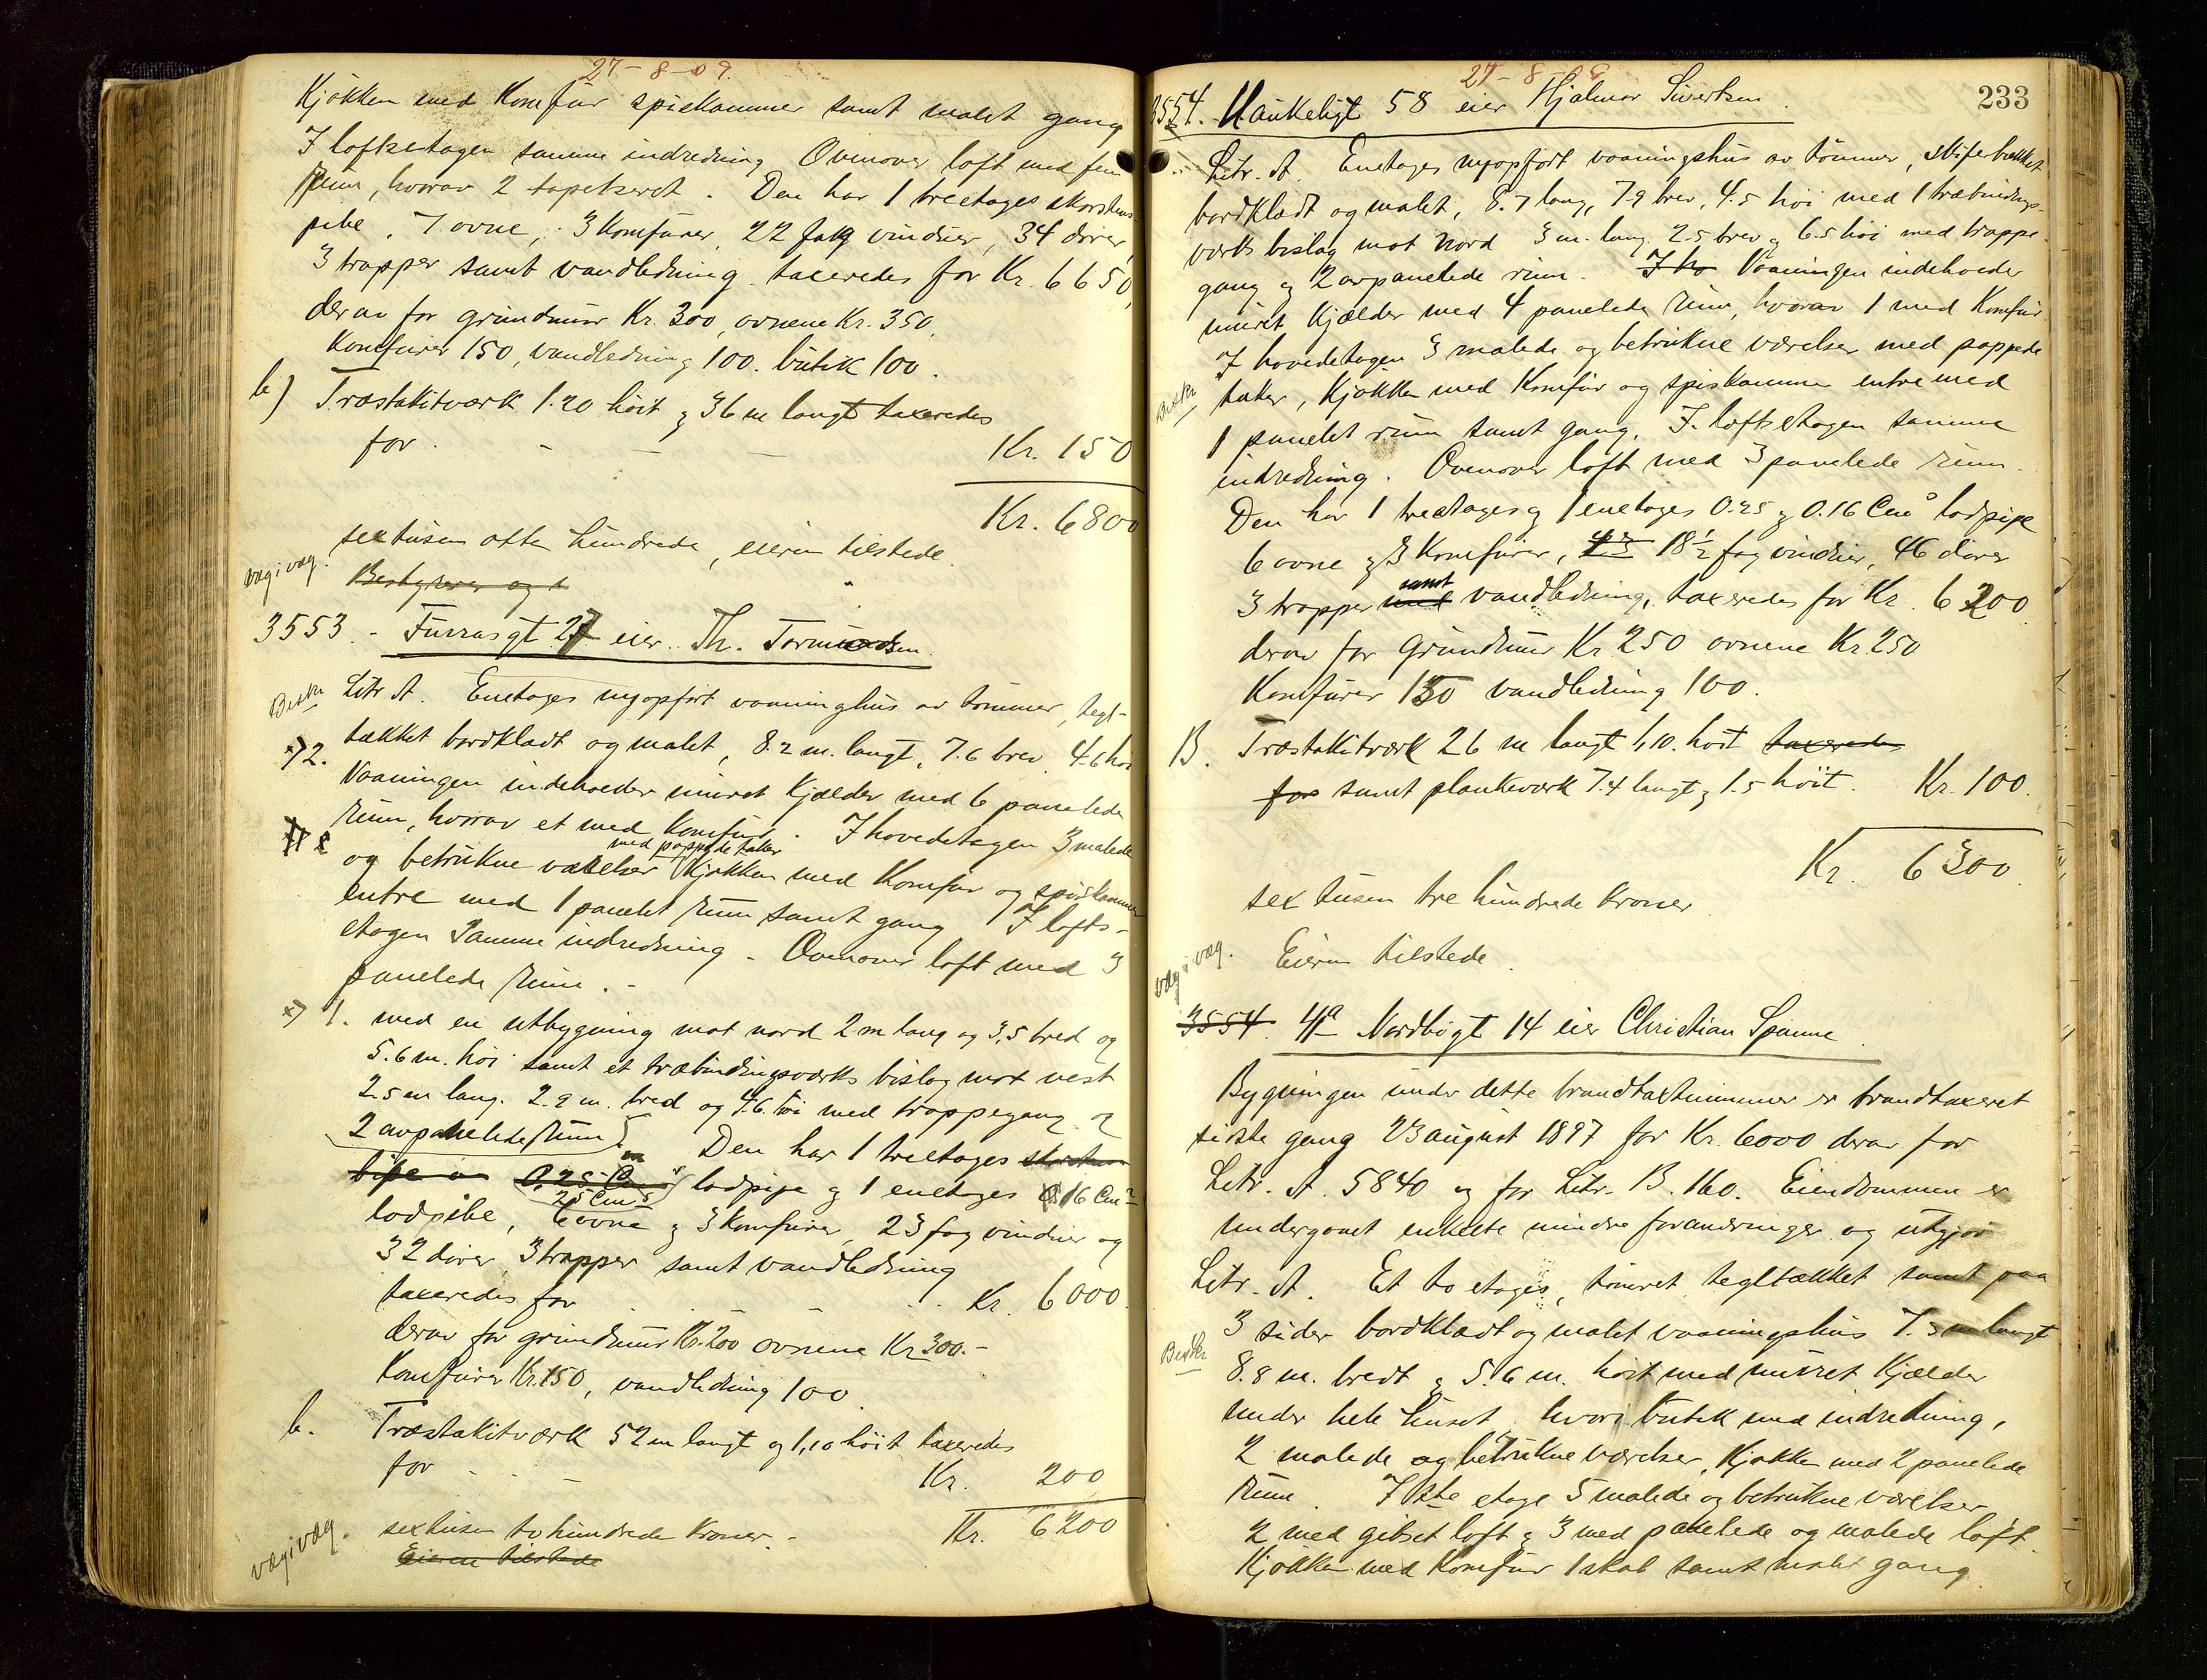 27-8-09.
Kjøkken med Komfur spiskammer samt malet gang
I loftsetagen samme indredning Ovenover loft med fem
rum, hvorav 2 tapetseret. Den har 1 treetages skorstens-
pibe. 7 ovne, 3 Komfurer, 22 fag vinduer, 34 dører,
3 trapper samt vandledning taxeredes for Kr. 6650,
derav for grundmur Kr. 300, ovnene Kr. 350,
Komfurer 150, vandledning 100. butik 100.
b) Træstakitværk 1.20 høit og 36 m langt taxeredes
for Kr. 150
Kr. 6800
sextusen otte hundrede, eieren tilstede.
væg i væg.
Bestyrerer og e
3553. - Furrasgt 27 eier. Th. Tormodsen.
Beskr
Litr A. Enetages nyopført vaaninghus av tømmer, tegl-
tækket bordklædt og malet, 8.2 m. langt, 7.6 brev 4.6 høi
x) 2. Vaaningen indeholder muret Kjælder med 6 panelede
rum, hvorav et med Komfur. I hovedetagen 3 malede
med pappede taker
og betrukne værelser Kjøkken med Komfur og spiskammer
entre med 1 panelet rum samt gang I lofts-
etagen samme indredning - Ovenover loft med 3
panelede rum. -
x) 1. med en utbygning mot nord 2 m lang og 3,5 bred og
5.6 m. høi samt et træbindingsværks bislag mot vest
2.5 m lang. 2.2 m. bred og 4.6. høi med trappegang og
2 avpanelede rum. Den har 1 treetages skorstens
pipe a 0.25 Cm lodpipe og 1 enetages 0.16 Cm
25 Cm
lodpibe, 6 ovne og 3 Komfurer, 23 fag vinduer og
32 dører, 3 trapper samt vandledning
taxeredes for Kr. 6000.
derav for grundmur Kr. 200 ovnene Kr 300.-
Komfurer Kr. 150, vandledning 100
b. Træstakitværk 52 m langt og 1,10 høit taxeredes
for Kr. 200
væg i væg. sextusen to hundrede Kroner. - Kr. 6200
Eieren tilstede
27-8-09
233
3554. Haukeligt 58 eier Hjalmar Sivertsen.
Litr. A. Enetages nyopført vaaningshus av tømmer, skifertækket
bordklædt og malet, 8.7 lang, 7.9 brev, 4.5 høi med 1 træbindings-
værks bislag mot nord 3 m. lang. 2.5 brev og 6.5 høi med trappe-
gang og 2 avpanelede rum. I ho Vaaningen indeholder
muret Kjælder med 4 panelede rum, hvorav 1 med Komfur
I hovedetagen 3 malede og betrukne værelser med pappede
Beskr
taker, Kjøkken med Komfur og spiskammer entre med
1 panelet rum samt gang. I loftsetagen samme
indredning. Ovenover loft med 3 panelede rum.
Den har 1 treetages og 1 enetages 0.25 og 0.16 Cm lodpipe
6 ovne og 3 Komfurer, 18 1/2 fag vinduer, 46 dører
3 trapper med samt vandledning, taxeredes for Kr. 6200.
derav for Grundmur Kr 250 ovnene Kr. 250
Komfurer 150 vandledning 100.
B. Træstakitværk 26 m langt 1,10. høit taxeredes
for samt plankeværk 7.4 langt og 1.5 høit. Kr. 100.
Kr. 6300.
sex tusen tre hundrede kroner
væg i væg. Eieren tilstede.
3554. 4a Nordbøgt 14 eier Christian Spanne.
Bygningen under dette brandtaxtnummer er brandtaxeret
sidste gang 23 august 1897 for Kr. 6000 derav for
Litr. A. 5840 og for Litr. B. 160. Eiendommen er
undergaaet enkelte mindre forandringer og utgjør
Litr. A. Et to etages, tømret tegltækket samt paa
3 sider bordklædt og malet vaaningshus 7.5 m langt
Beskr
8.8 m. bredt og 5.6 m. høit med muret Kjælder
under hele huset hvori butik med indredning,
2 malede og betrukne værelser, Kjøkken med 2 panelede
rum. I 2de etage 5 malede og betrukne værelser
2 med gibset loft og 3 med panelede og malede loft.
Kjøkken med Komfur 1 skab samt malet gang